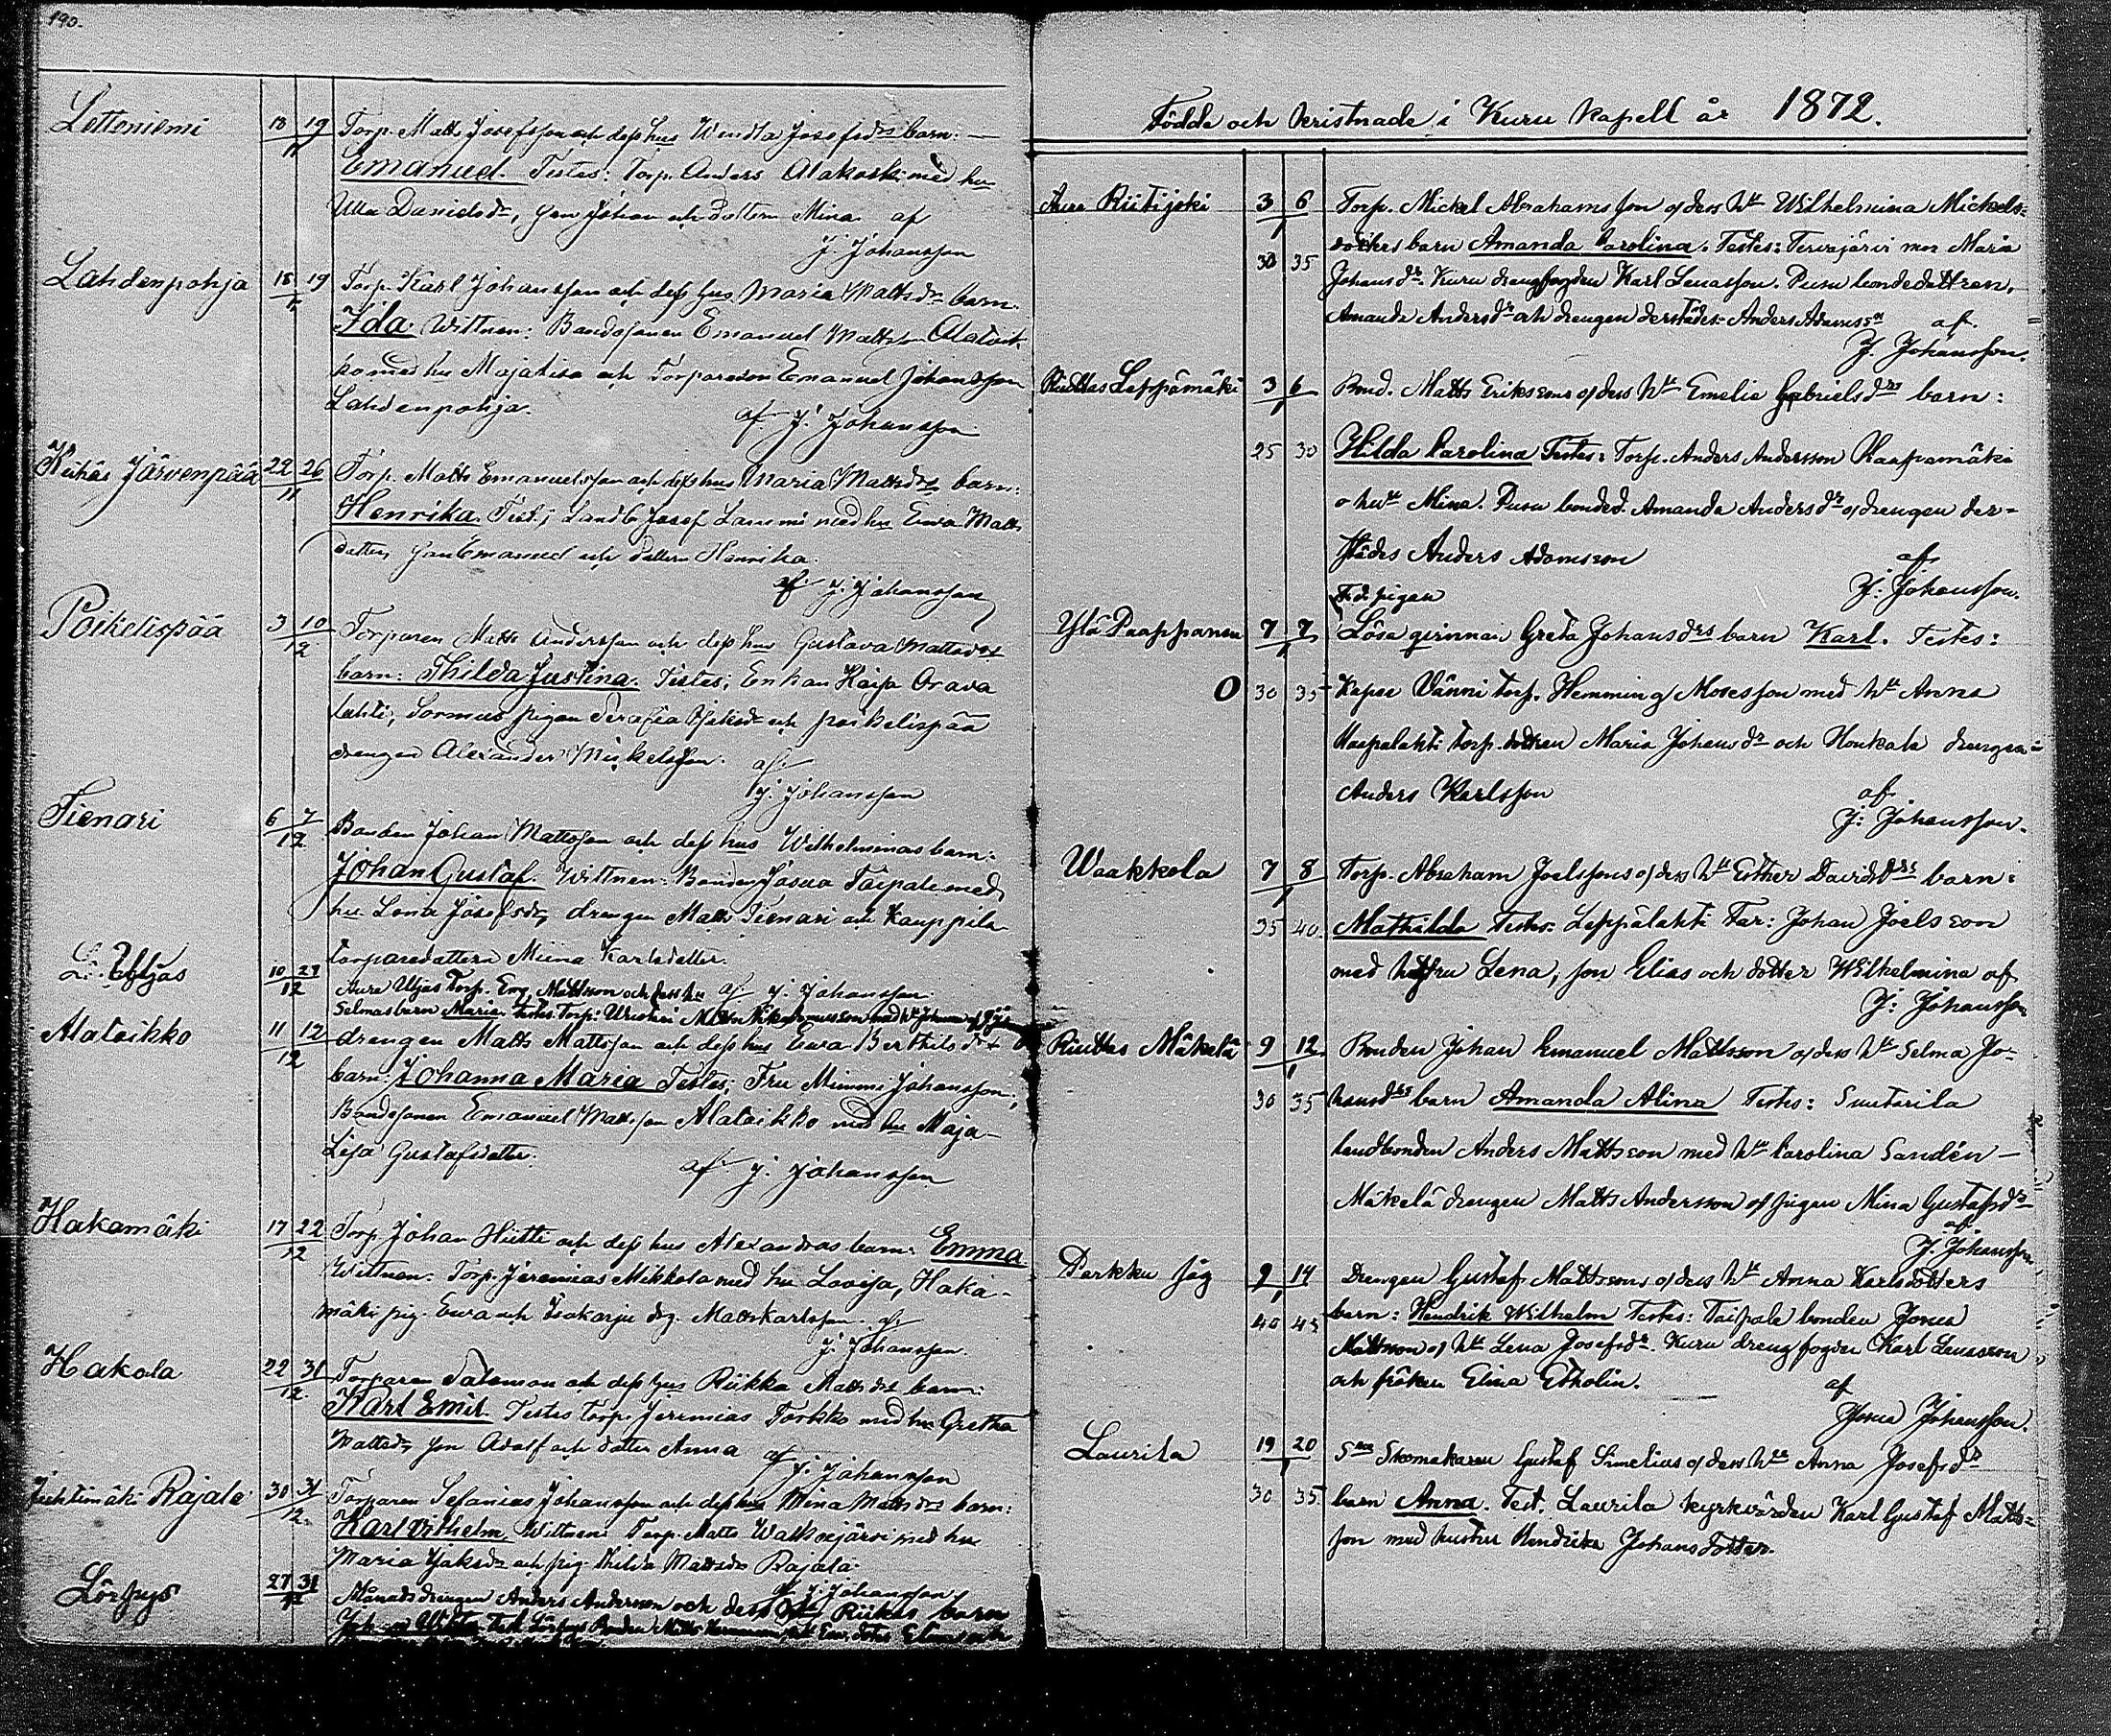 190.
Lettoniemi 13 19 / 11 Torp. Matts Josefsson och dess hus Wendla Josefsdrs barn: —
Emanuel. Testes: Torp. Anders Alakoski med hu
Ulla Danielsdr, son Johan och dottern Mina. af
J. Johansson
Lahdenpohja 18 19 / 11 Torp. Karl Johansson och dess hus Maria Mattsdrs barn.
Ida. Wittnen: Bondesonen Emanuel Mattsson Alatoik
ko med hu Majalisa och Torpareson Emanuel Johansson
Lahdenpohja. af J. Johansson
Järvenpää 22 26 / 11 Torp. Matts Emanuelsson och dess hus Maria Mattsdrs barn:
Henrika. Test; Landb Josef Lammi med hu Ewa Matts
dotter, son Emanuel och dottern Henrika.
af J. Johansson
Poikelispää 3 10 / 12 Torparen Matts Andersson och dess hus Gustava Mattsdrs
barn: Thilda Justina. Testes; Enkan Kaisa Orava
lahti, Sormus pigan Serafia och poikelispää
drengen Alexander Mickelsson. af
J. Johansson
Tienari 6 7 / 12 Bonden Johan Mattsson och dess hus Wilhelminas barn:
Johan Gustaf. Wittnen: Bonden Josua Taipale med
hu Lena Josefsdr, drengen Matts Tienari och Kauppila
torparedottern Miina Karlsdotter.
10 27 / 12 Aure Uljas Torp. Em. Mattsson och dess hu af J. Johansson.
Selmas barn Maria. Testes. Torp:
Alatoikko 11 12 / 12 drengen Matts Mattsson och dess hus Ewa Berthilsdr
barn: Johanna Maria Testes; Fru Mimmi Johansson;
Bondesonen Emanuel Mattsson Alatoikko med hu Maja-
Lisa Gustafsdotter. af J. Johansson
Hakamäki 17 22 / 12 Torp. Johan Hütti och dess hus Alexandras barn: Emma
Wittnen: Torp. Jeremias Mikkola med hu Lovisa, Haka-
mäki pig. Ewa och Isakarju drg. Matts Karlsson. af
J. Johansson.
Hakola 22 31 / 12 Torparen Salomon och dess hus Riikka Mattsdrs barn:
Karl Emil. Testes torp. Jeremias Torkko med hu Gretha
Mattsdr, son Adolf och dotter Anna af J. Johansson
Rajala 30 31 / 12. Torparen Sefanias Johansson och dess hus Mina Mattsdrs barn:
Karl Vilhelm Wittnen: Torp. Matts med hu
Maria och pig. Thilda Mattsdr Rajala.
af J. Johansson
Lörpys 27 31 / 12 Månadsdrengen Anders Andersson och dess hu Riikas barn
Födde och kristnade i Kuru Kapell år 1872.
Aure Riitijoki 3 6 / 1 Torp. Mickel Abrahamsson o/ dess hu Wilhelmina Mickels=
dotters barn Amanda Carolina. Testes: Tervajärvi mor Maria
30 35 Johansdr. Kuru drengfogden Karl Lenasson. Pusu bondedottren,
Amanda Andersdr och drengen derstädes Anders Adamsson af.
J. Johansson.
Riuttas Leppämäki 3 6 / 1 Bond. Matts Erikssons o/ dess hu Emelie Gabrielsdrs barn:
25 30 Hilda Carolina Testes: Torp. Anders Andersson Raapamäki
o hu Mina. Pusu bonded. Amanda Andersdr o/ drengen der=
städes Anders Adamsson af
J: Johansson.
F.d. pigan
Ylä Paappanen 7 7 / 1 Lösa qvinnan Greta Johansdrs barn Karl. Testes:
O 30 35 Kapee Vänni torp. Hemming Mosesson med hu Anna
Haapalahti torp. dottren Maria Johansdr och Honkala drengen
Anders Karlsson af
J: Johansson.
Waakkola 7 8 / 1 Torp. Abraham Joelssons o/ dess hu Esther Davidsdrs barn:
35 40. Mathilda Testes: Leppälahti Far: Johan Joelsson
med hustru Lena, son Elias och dotter Wilhelmina af
J: Johansson
Riuttas Mäkelä 9 12. / 1 Bonden Johan Emanuel Mattsson o/ dess hu Selma Jo-
30 35 hansdrs barn Amanda Alina Testes: Suutarila
landbonden Anders Mattsson med hu Carolina Sandén —
Mäkelä drengen Matts Andersson o/ pigan Mina Gustafsdr
af
J. Johansson
Parkku 9 14 / 1 Drengen Gustaf Mattssons o/ dess hu Anna Karlsdotters
40 45 barn: Hendrik Wilhelm Testes: Taipale bonden Josua
Mattsson o/ hu Lena Josefsdr. Kuru drengfogden Karl Lenasson
och fröken Elina Etholén. af
Josua Johansson.
Laurila 19 20 / 1 Skomakaren Gustaf Simelius o/ dess hu Anna Josefsdr
30 35. barn Anna. Test. Laurila kyrkvärden Karl Gustaf Matts=
son med hustru Hendrika Johansdotter.